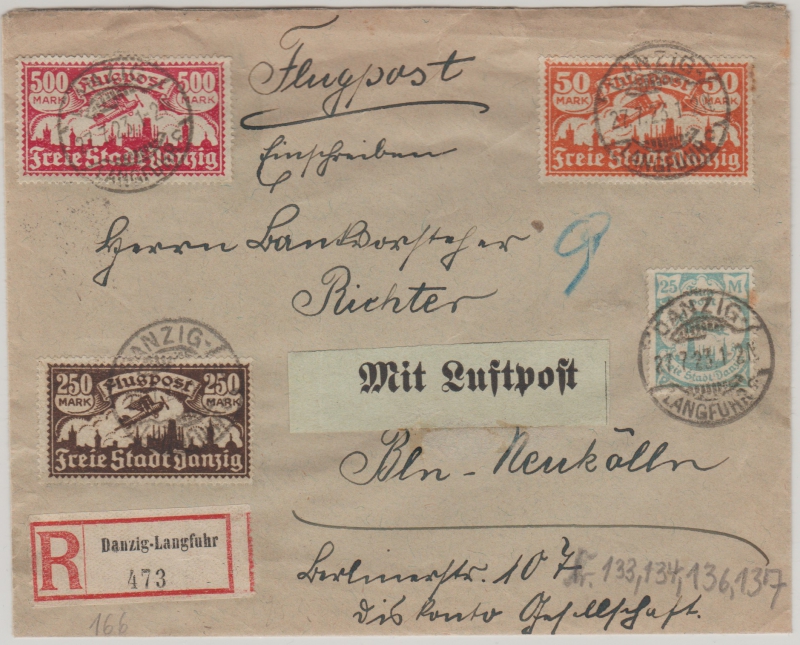 500 Flugpost 500
MARK MARK
Freie Stadt Danzig
Flugpost
50 Flugpost 50
MARK MARK
Freie Stadt Danzig
Einschreiben
Herrn Bankvorsteher
Richter
9
25 M
Freie Stadt Danzig
DANZIG-
27.7.23.1-2N
LANGFUHR
DANZIG-
250 Flugpost 250
MARK MARK
Freie Stadt Danzig
Mit Luftpost
Bln-Neukölln
R Danzig-Langfuhr
473
Berlinerstr. 107
Diskonto Gesellschaft.
Nr. 133, 134, 136, 137
166